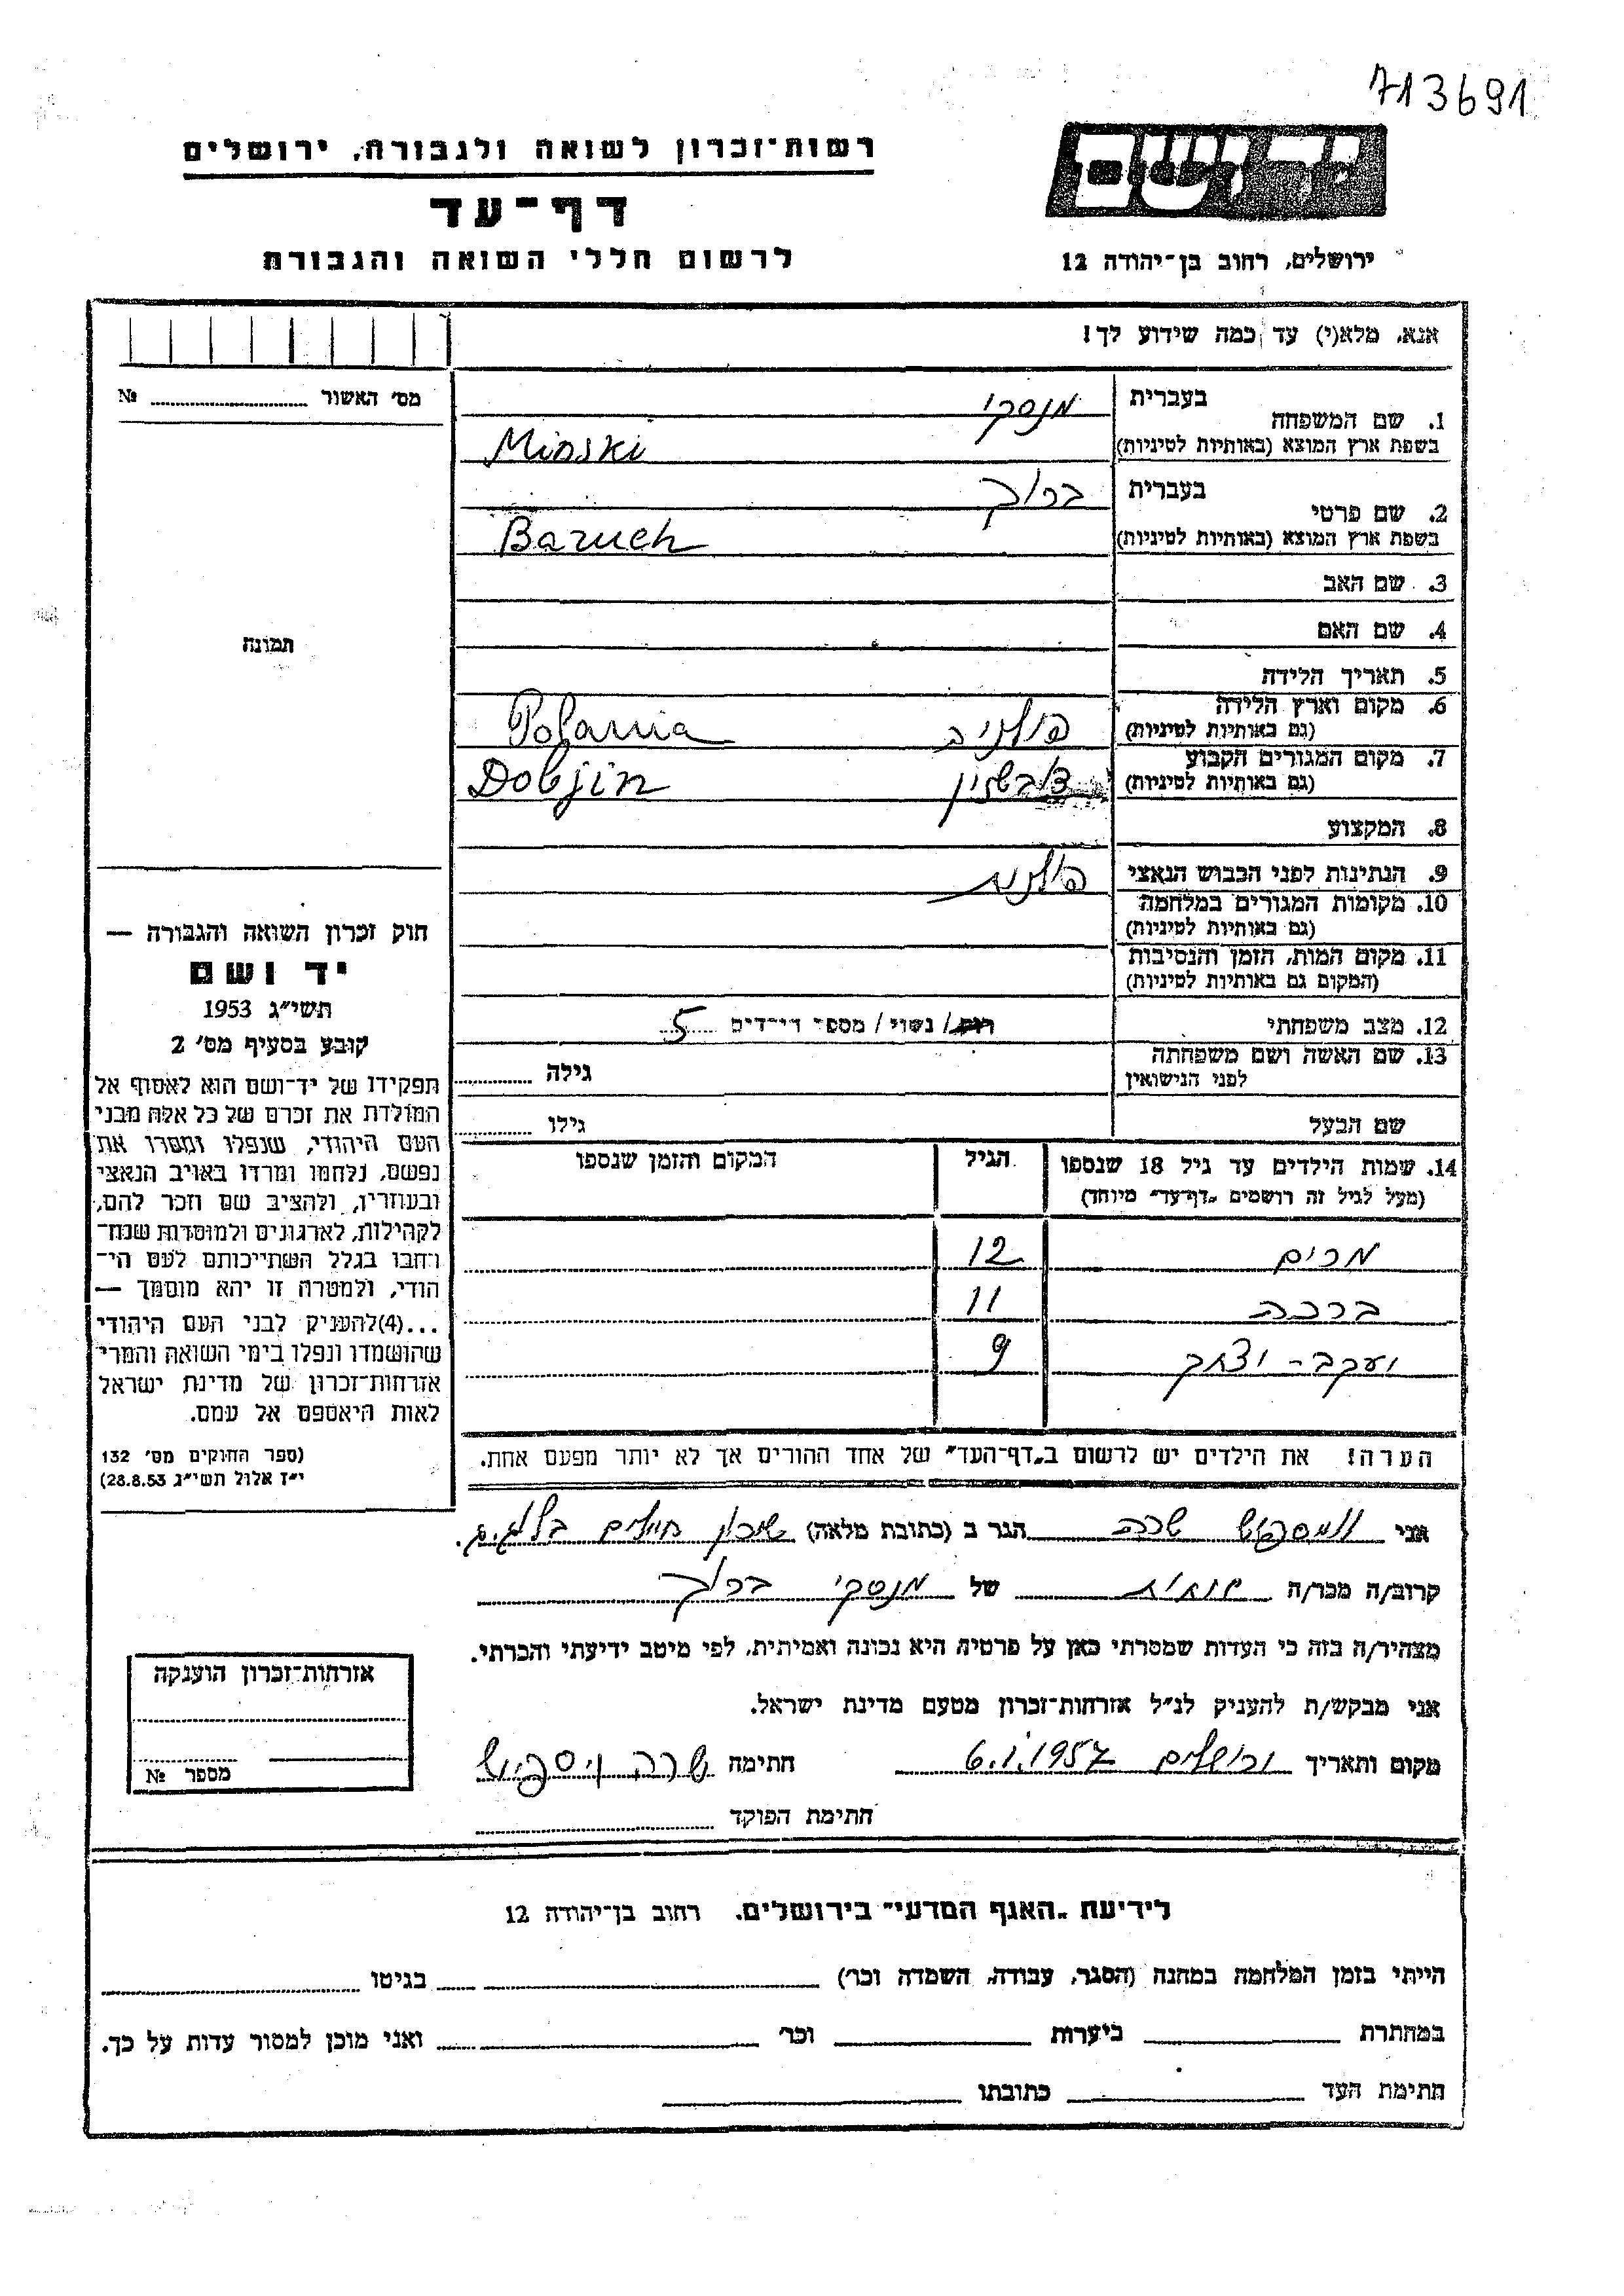 713691
יד ושם
רשות־זכרון לשואה ולגבורה, ירושלים
דף־עד
לרשום חללי השואה והגבורה
ירושלים, רחוב בן־יהודה 12
אנא, מלא(י) עד כמה שידוע לך!
מס׳ האשור № 
1. שם המשפחה
בעברית מנסקי
בשפת ארץ המוצא (באותיות לטיניות) Minski
2. שם פרטי
בעברית ברוך
בשפת ארץ המוצא (באותיות לטיניות) Baruch
3. שם האב
4. שם האם
תמונה
5. תאריך הלידה
6. מקום וארץ הלידה
(גם באותיות לטיניות) Polania
7. מקום המגורים הקבוע
(גם באותיות לטיניות) Dobjin
8. המקצוע
9. הנתינות לפני הכבוש הנאצי
10. מקומות המגורים במלחמה
(גם באותיות לטיניות)
11. מקום המות, הזמן והנסיבות
(המקום גם באותיות לטיניות)
12. מצב משפחתי רווק/ נשוי/ מספר הילדים 5
13. שם האשה ושם משפחתה
לפני הנישואין
גילה
שם הבעל גילו
14. שמות הילדים עד גיל 18 שנספו הגיל המקום והזמן שנספו
(מעל לגיל זה רושמים „דף־עד״ מיוחד)
מרים 12
ברכה 11
יעקב־יצחק 9
הערה! את הילדים יש לרשום ב„דף־העד״ של אחד ההורים אך לא יותר מפעם אחת.
חוק זכרון השואה והגבורה —
יד ושם
תשי״ג 1953
קובע בסעיף מס׳ 2
תפקידו של יד־ושם הוא לאסוף אל
המולדת את זכרם של כל אלה מבני
העם היהודי, שנפלו ומסרו את
נפשם, נלחמו ומרדו באויב הנאצי
ובעוזריו, ולהציב שם וזכר להם,
לקהילות, לארגונים ולמוסדות שנח־
רבו בגלל השתייכותם לעם הי־
הודי, ולמטרה זו יהא מוסמך —
...(4)להעניק לבני העם היהודי
שהושמדו ונפלו בימי השואה והמרי
אזרחות־זכרון של מדינת ישראל
לאות היאספם אל עמם.
(ספר החוקים מס׳ 132
י״ז אלול תשי״ג 28.8.53)
אני שרה הגר ב (כתובת מלאה) שיכון חיילים
קרוב/ה מכר/ה של מנסקי ברוך
מצהיר/ה בזה כי העדות שמסרתי כאן על פרטיה היא נכונה ואמיתית, לפי מיטב ידיעתי והכרתי.
אני מבקש/ת להעניק לנ״ל אזרחות־זכרון מטעם מדינת ישראל.
מקום ותאריך ירושלים 6.1.1957 חתימה שרה
חתימת הפוקד
אזרחות־זכרון הוענקה
מספר №
לידיעת „האגף המדעי״ בירושלים. רחוב בן־יהודה 12
הייתי בזמן המלחמה במחנה (הסגר, עבודה, השמדה וכו׳) בגיטו
במחתרת ביערות וכו׳ ואני מוכן למסור עדות על כך.
חתימת העד כתובתו